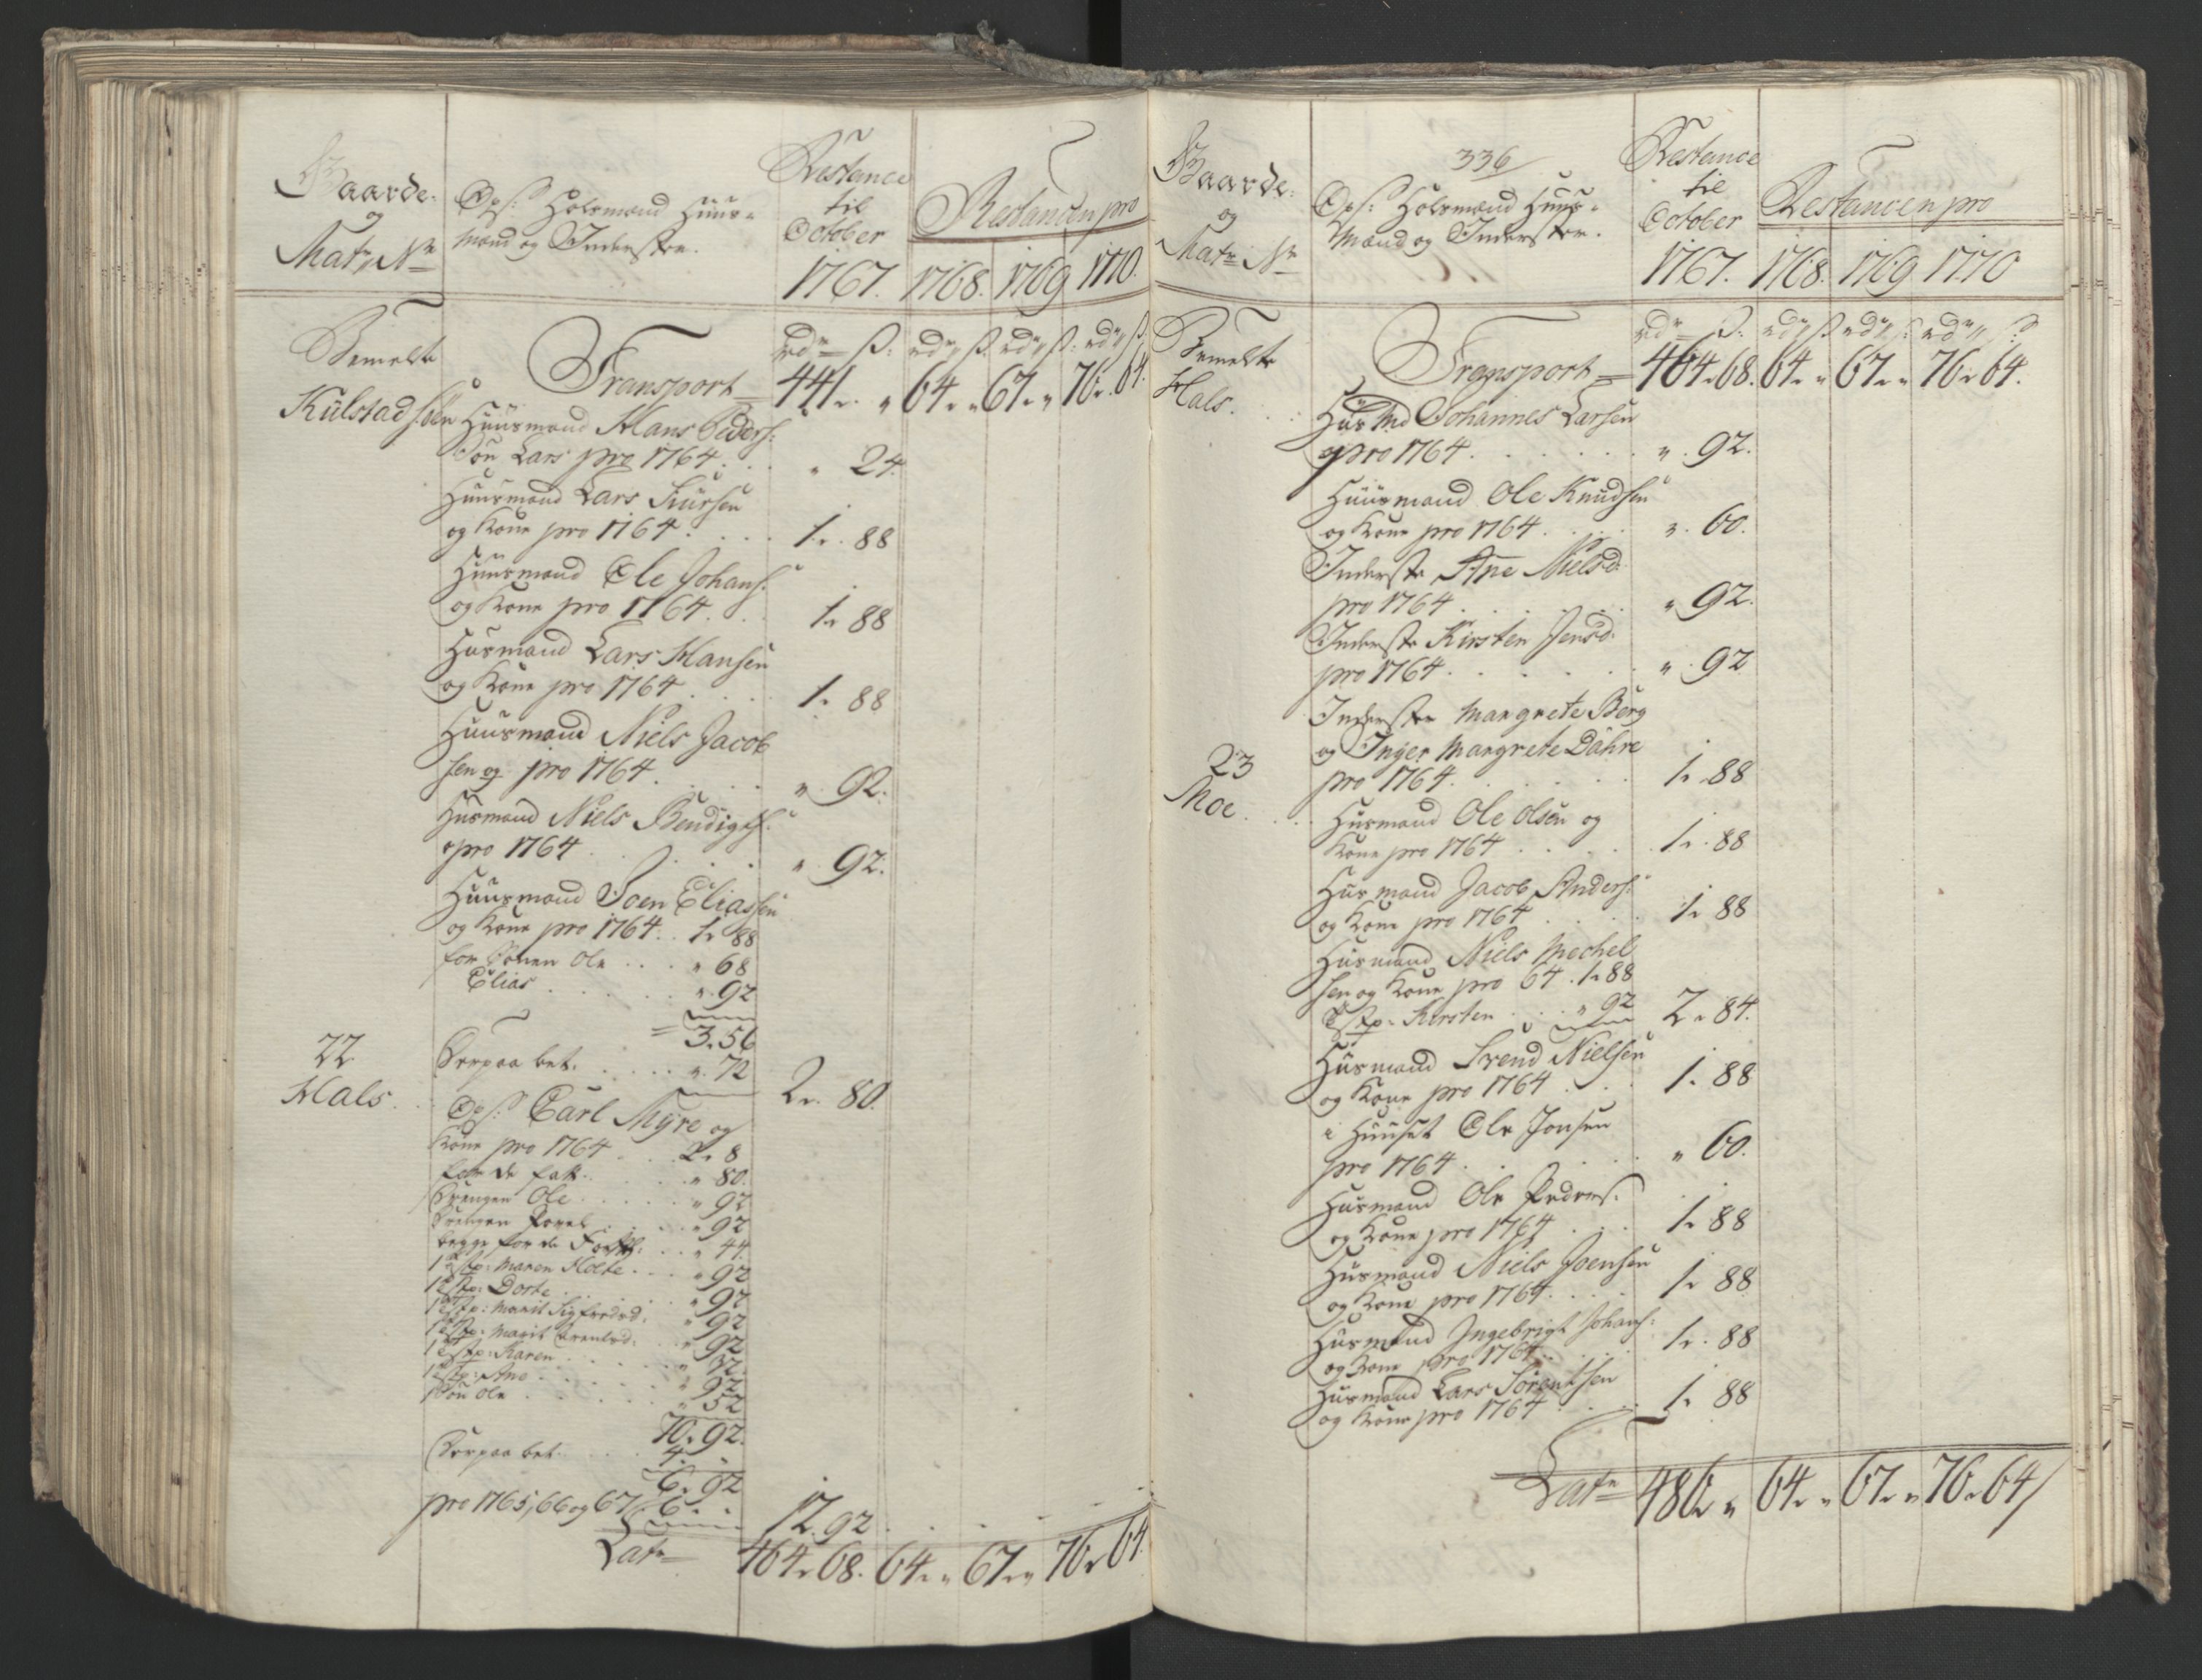 Gaarde
og
Matr. Nr
Ops: Holsmænd Huus-
Mænd og Inderster.
Restance
til
October
1767.
Restancen pro
1768. 1769 1770.
rdr ß: rdr ß rdr ß: rdr ß
Bemelte
Kulstad
Transport 441. " 64. " 67. " 76. 64.
Huusmand Hans Peders:
Søn Lars pro 1764 . . . " 24.
Huusmand Lars Siursen
og Kone pro 1764 . . . 1. 88
Huusmand Ole Johans:
og Kone pro 1764 . . 1. 88
Husmand Lars Hansen
og Kone pro 1764 . . . 1. 88
Huusmand Niels Jacob
sen og pro 1764 . . . " 92.
Husmand Niels Bendigts:
pro 1764 . . . . " 92.
Huusmand Joen Eliassen
og Kone pro 1764 . . 1. 88
for Sønen Ole . . . " 68
Elias . . . . . . " 92
= 3. 56
Derpaa bet. . . . . " 72
2. 80.
22
Hals.
Ops: Carl Myre og
Kone pro 1764 . . 2. 8
for de fatt. . . . . " 80.
Drengen Ole . . . . . " 92
Drengen Povel . . . . " 92
begge for de . . . " 44.
1 Tstp: Maren Holte . . . " 92
1 Tstp: Dorte . . . . . " 92
1 Tstp: Marit Sigfredsd. " 92
1 Tstp: Marit . . " 92
1 Tstp: Karen . . . . . " 32.
1 Tstp: Ane . . . . . " 92
Søn Ole . . . . . " 52
10. 92.
Derpaa bet. . . . 4. .
6. 92
pro 1765, 66 og 67 6. .
12. 92
Latr 464. 68. 64. " 67. " 76. 64.
336
Gaarde
og
Matr. Nr
Ops: Holsmænd Huus-
Mænd og Inderster.
Restance
til
October
1767.
Restancen pro
1768. 1769 1770
rdr ß: rdr ß rdr ß: rdr ß:
Bemelte
Hals.
Transport 464. 68. 64. " 67. " 76. 64.
Hus Md Johannes Larsen
pro 1764 . . . . . . " 92.
Huusmand Ole Knudsen
og Kone pro 1764 . . . . " 60.
Inderste Ane Nielsd:
pro 1764 . . . . . . " 92.
Inderste Kirsten Jensd:
pro 1764 . . . . . . " 92
Inderster Margrete Berg
og Inger Margrete Dahre
pro 1764 . . . . . 1. 88
23
Moe.
Husmand Ole Olsen og
Kone pro 1764 . . . . 1. 88
Husmand Jacob Anders:
og Kone pro 1764 . . . . 1. 88
Husmand Niels Mechel
sen og Kone pro 64 . 1. 88
Tstp: Kirsten . . . " 92 2. 84.
Husmand Svend Nielsen
og Kone pro 1764 . . . 1. 88
i Huuset Ole Jonsen
pro 1764 . . . . . " 60.
Husmand Ole Peders:
og Kone pro 1764 . . . 1. 88
Husmand Niels Joensen
og Kone pro 1764 . . . . 1. 88
Husmand Ingebrigt Johans:
og Kone pro 1764 . . . . 1. 88
Husmand Lars Sørentsen
og Kone pro 1764 . . . . 1. 88
Latr 486. " 64. " 67. " 76. 64